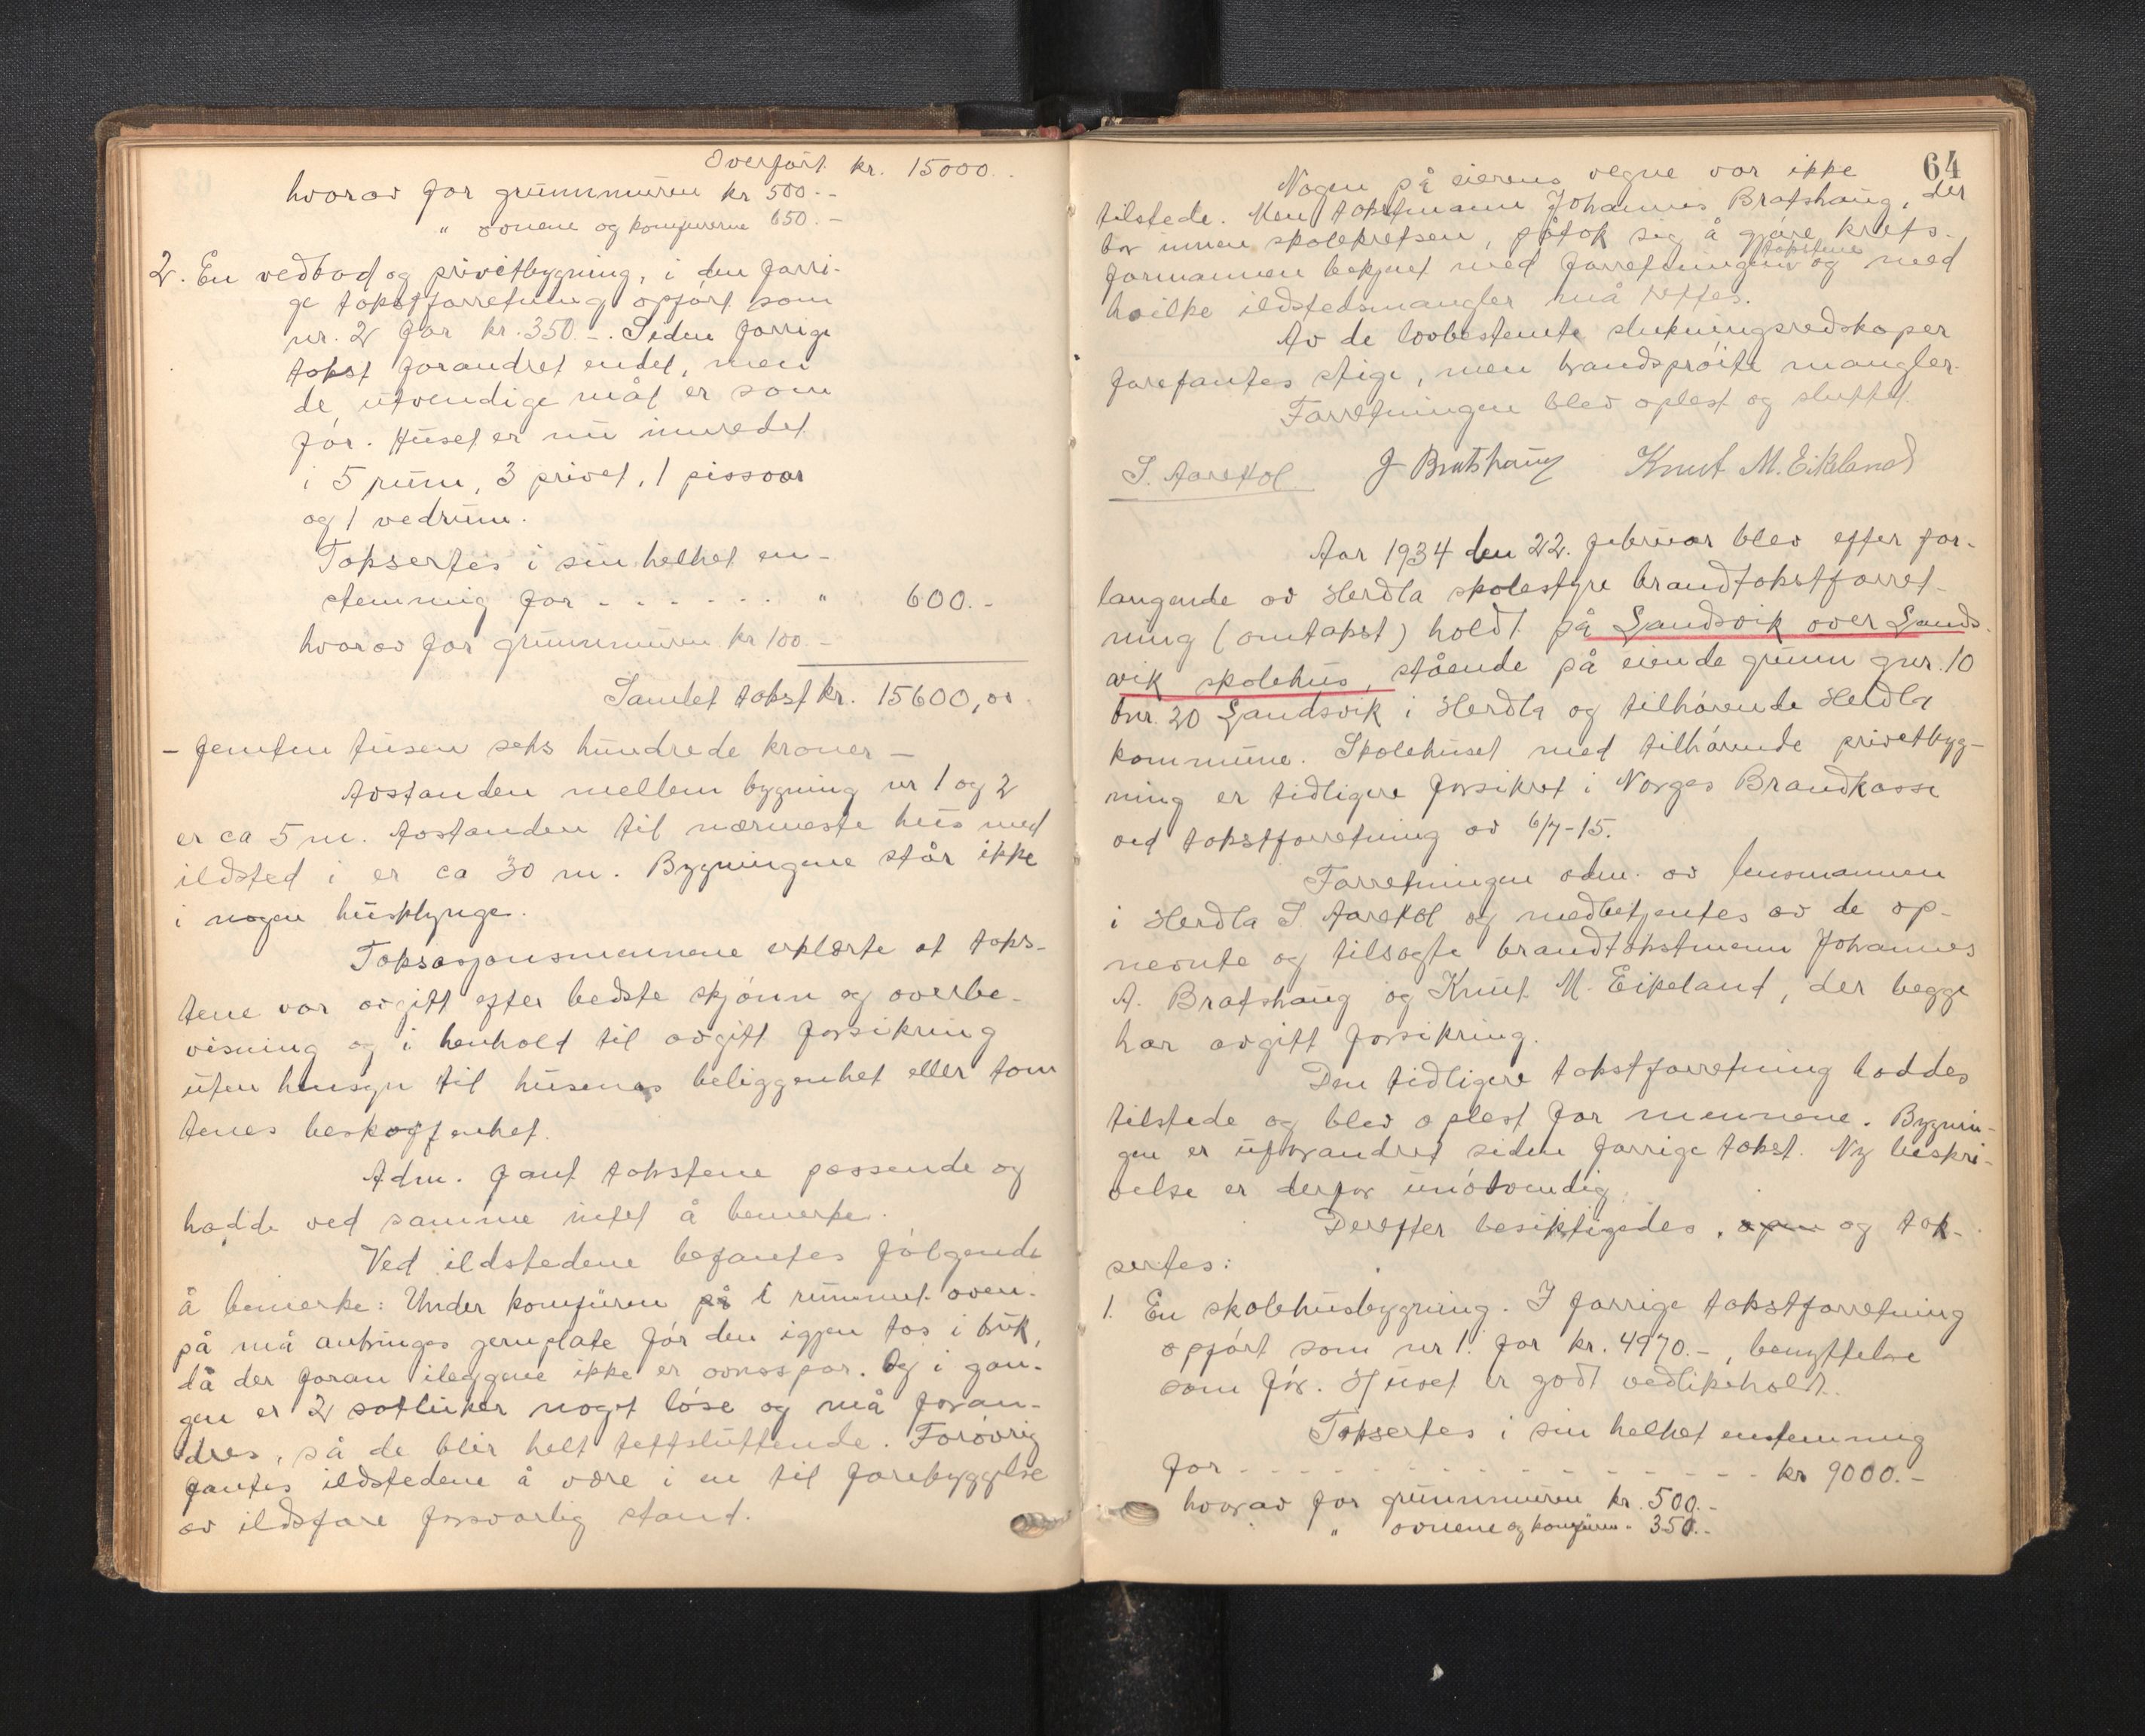 Overført kr. 15000.-
hvorav for grunnmuren kr 500.-
" ovnene og komfurerne 650.-
2. En vedbod og privetbygning, i den forri-
ge takstforretning opført som
nr. 2 for kr. 350.-. Siden forrige
takst forandret endel, men
de utvendige mål er som
før. Huset er nu innredet
i 5 rum, 3 privet, 1 pissoar
og 1 vedrum.
Taksertes i sin helhet en-
stemmig for - - - - - - " 600.-
hvorav for grunnmuren kr 100.-
Samlet takst kr. 15600,00
- femten tusen seks hundrede kroner -
Avstanden mellem bygning nr 1 og 2
er ca 5 m. Avstanden til nærmeste hus med
ildsted i er ca 30 m. Bygningene står ikke
i nogen husklynge.
Taksasjonsmennene erklærte at taks-
tene var avgitt efter bedste skjønn og overbe-
visning og i henhold til avgitt forsikring
uten hensyn til husenes beliggenhet eller tom
tenes beskaffenhet.
Adm. fant takstene passende og
hadde ved samme intet å bemerke.
Ved ildstedene befantes følgende
å bemerke: Under komfuren på i rummet oven-
på må anbringes jernplate før den igjen tas i bruk,
då der foran ileggene ikke er ovnsspor. Og i gan-
gen er 2 sotluker noget løse og må foran-
dres, så de blir helt tettsluttende. Forøvrig
fantes ildstedene å være i en til forebyggelse
av ildsfare forsvarlig stand.
64
Nogen på eierens vegne var ikke
tilstede. Men takstmann Johannes Bratshaug, der
bor innen skolekretsen, påtok sig å gjøre krets-
formannen bekjent med forretningens takstene og med
hvilke ildstedsmangler må rettes.
Av de lovbestemte slukningsredskaper
forefantes stige, men brandsprøite mangler.
Forretningen blev oplest og sluttet.
S. Aarekol J Bratshaug Knut M. Eikeland
Aar 1934 den 22. februar blev efter for-
langende av Herdla skolestyre brandtakstforret-
ning (omtakst) holdt på Landsvik over Lands-
vik skolehus, stående på eiende grunn gnr. 10
bnr. 20 Landsvik i Herdla og tilhørende Herdla
kommune. Skolehuset med tilhørende privetbyg-
ning er tidligere forsikret i Norges Brandkasse
ved takstforretning av 6/7-15.
Forretningen adm. av lensmannen
i Herdla S. Aarekol og medbetjentes av de op-
nevnte og tilsagte brandtakstmenn Johannes
A. Bratshaug og Knut M. Eikeland, der begge
har avgitt forsikring.
Den tidligere takstforretning haddes
tilstede og blev oplest for mennene. Bygnin-
gen er uforandret siden forrige takst. Ny beskri-
velse er derfor unødvendig.
Derefter besiktigedes, open og tak-
sertes:
1. En skolehusbygning. I forrige takstforretning
opført som nr 1. for kr. 4970.-, benyttelse
som før. Huset er godt vedlikeholdt.
Taksertes i sin helhet enstemmig
for - - - - - - - - - - - - kr 9000.-
hvorav for grunnmuren kr. 500.-
" ovnene og komfuren " 350.-